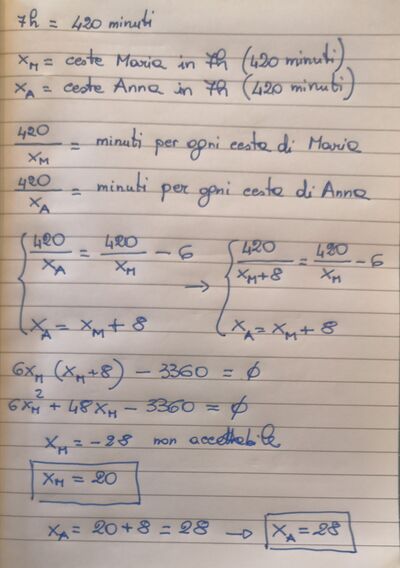 7h = 420 minuti
x_M = ceste Maria in 7h (420 minuti)
x_A = ceste Anna in 7h (420 minuti)
420/x_M = minuti per ogni cesta di Maria
420/x_A = minuti per ogni cesta di Anna
{ 420/x_A = 420/x_M - 6 → { 420/(x_M+8) = 420/x_M - 6
x_A = x_M + 8 x_A = x_M + 8
6x_M (x_M+8) - 3360 = ϕ
6x_M² + 48x_M - 3360 = ϕ
x_M = -28 non accettabile
x_M = 20
x_A = 20+8 = 28 → x_A = 28